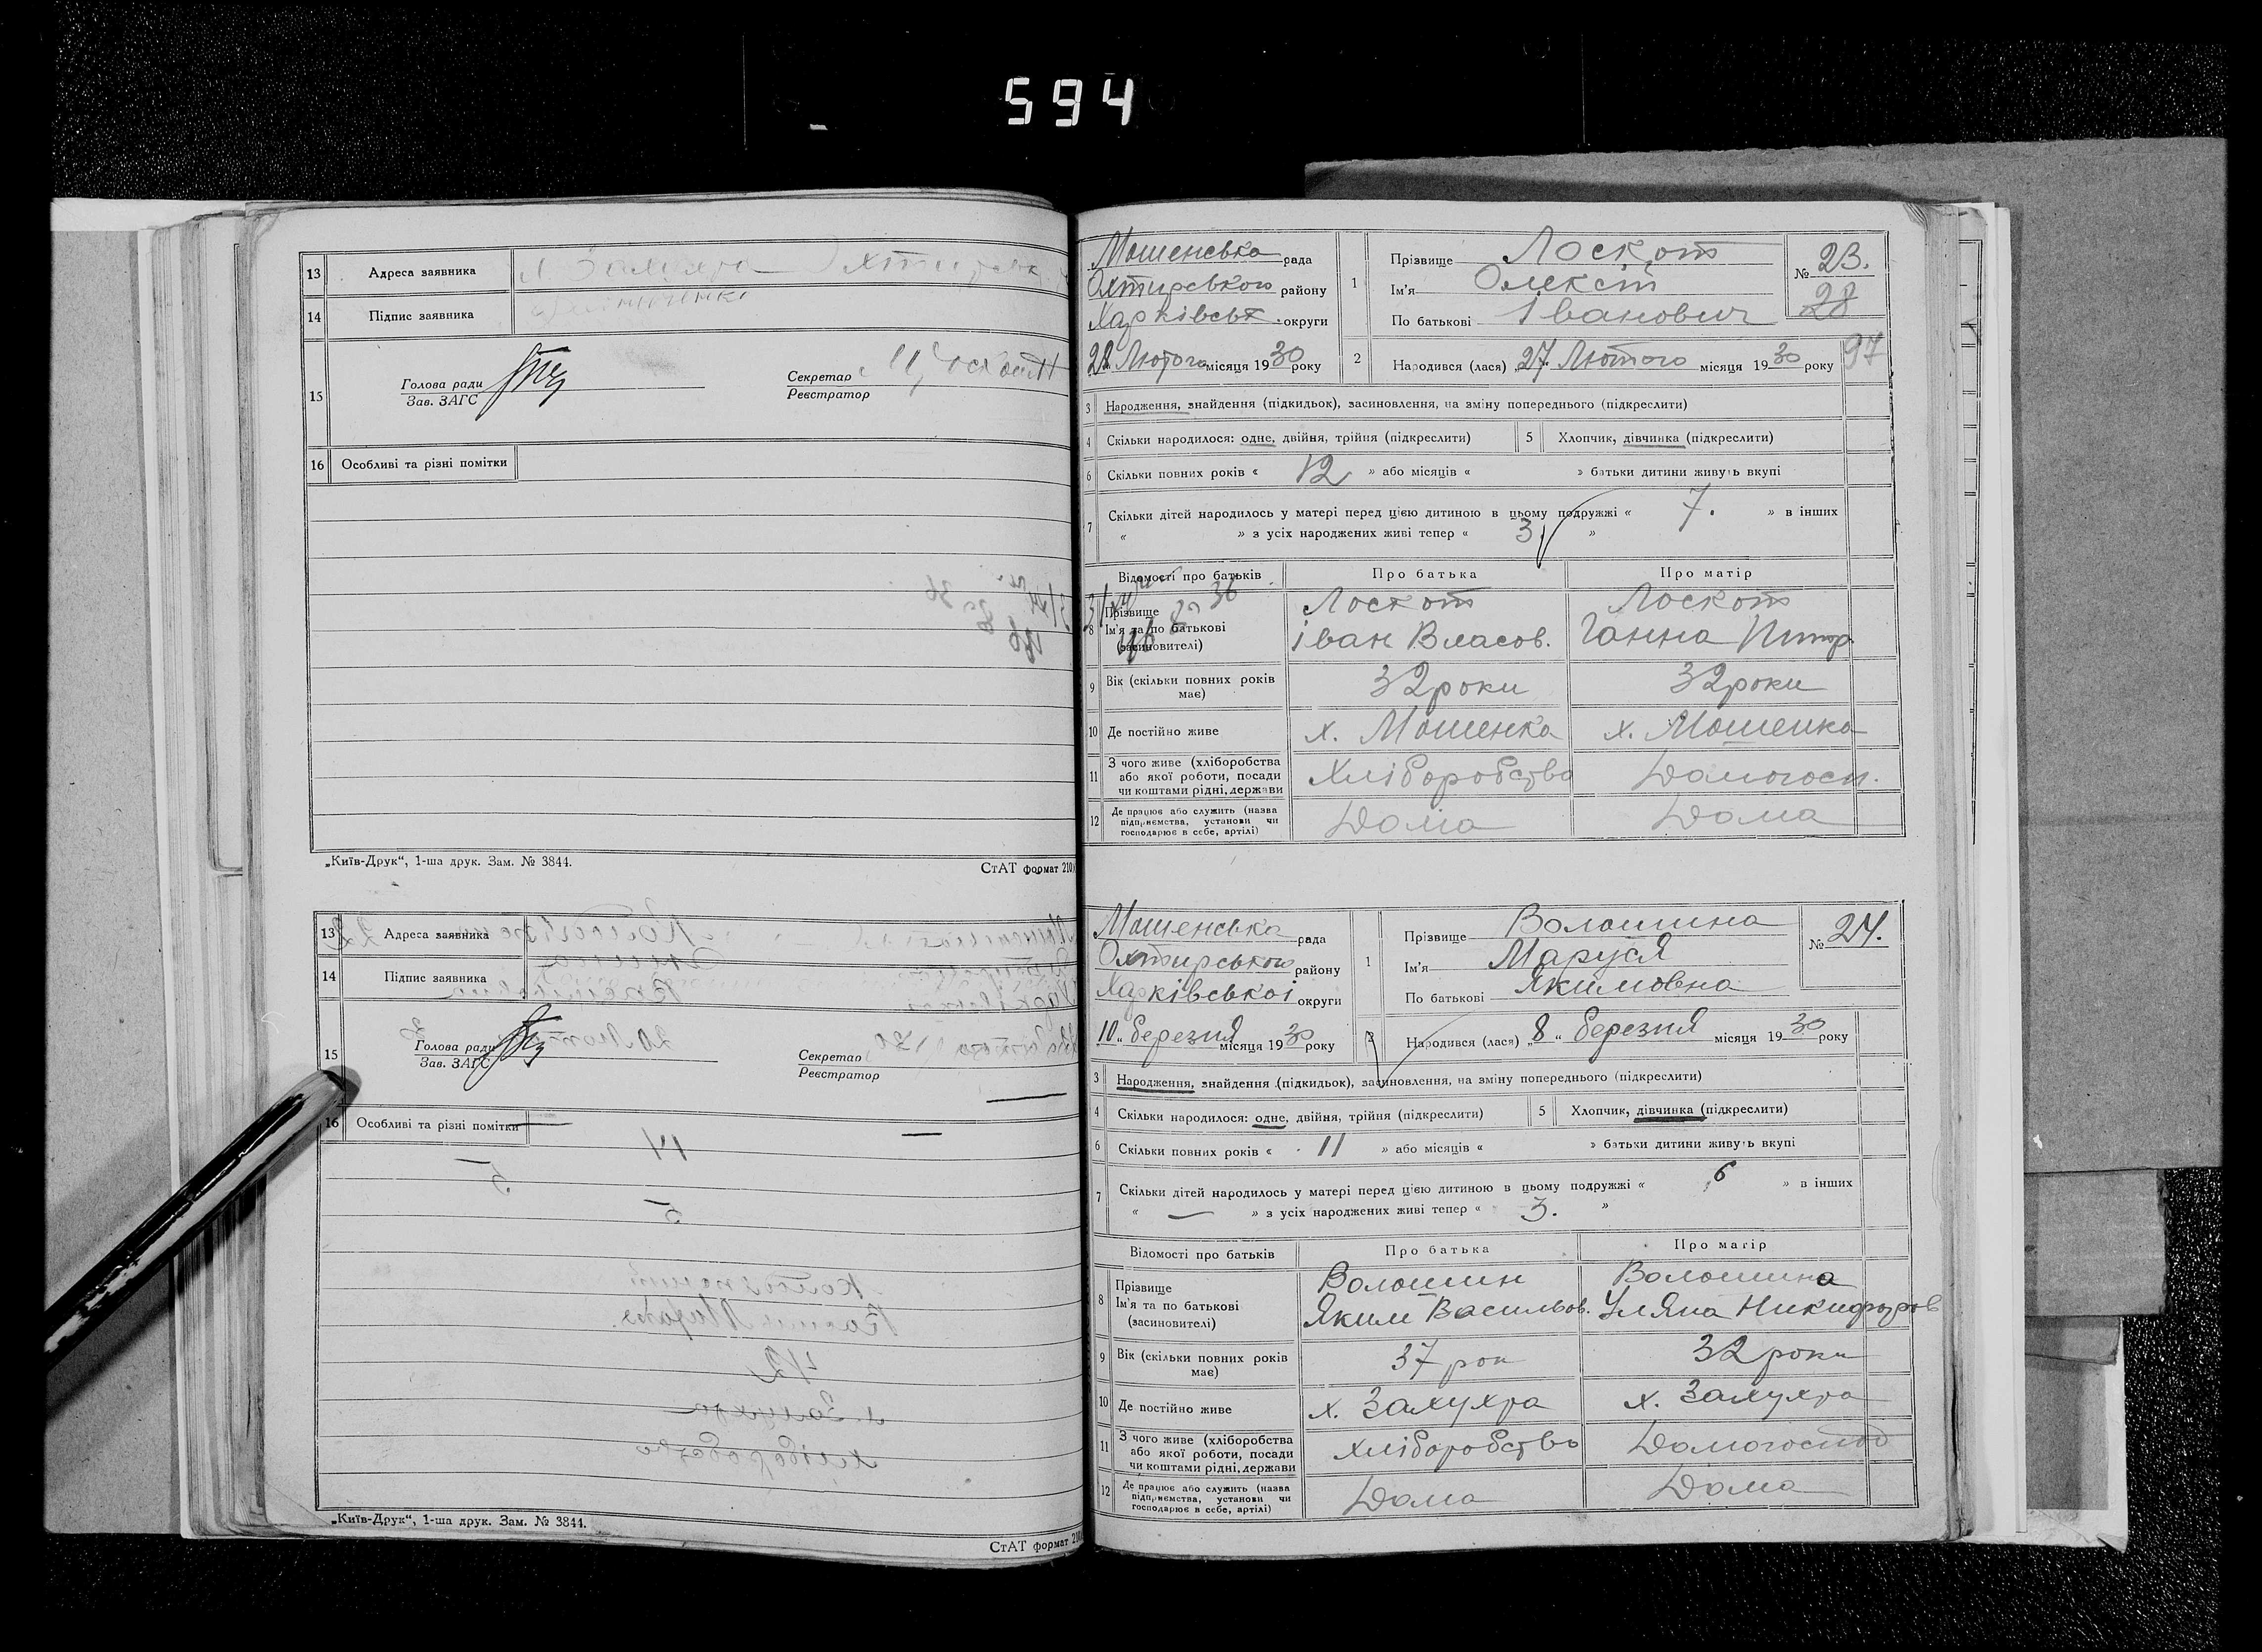 594
13 Адреса заявника
14 Підпис заявника
15 Голова ради
Зав. ЗАГС
Секретар
Реєстратор
16 Особливі та різні помітки
„Київ-Друк“, 1-ша друк. Зам. № 3844.
СтАТ формат 210
13 Адреса заявника
14 Підпис заявника
15 Голова ради
Зав. ЗАГС
Секретар
Реєстратор
16 Особливі та різні помітки
„Київ-Друк“, 1-ша друк. Зам. № 3844.
СтАТ формат 210
Мошенська рада
Охтирського району
Харківськ. округи
28 Лютого місяця 1930 року
1 Прізвище Лоскот
Ім'я Олексій
По батькові Іванович
№ 23.
28
2 Народився (лася) „27“ Лютого місяця 1930 року
97
3 Народження, знайдення (підкидьок), засиновлення, на зміну попереднього (підкреслити)
4 Скільки народилося: одне, двійня, трійня (підкреслити)
5 Хлопчик, дівчинка (підкреслити)
6 Скільки повних років « 12 » або місяців « » батьки дитини живуть вкупі
7 Скільки дітей народилось у матері перед цією дитиною в цьому подружжі « 7. » в інших
« » з усіх народжених живі тепер « 3 »
Відомості про батьків Про батька Про матір
8 Прізвище Лоскот Лоскот
Ім'я та по батькові Іван Власов. Ганна
(засиновителі)
9 Вік (скільки повних років має) 32 роки 32 роки
10 Де постійно живе х. Мошенка х. Мошенка
11 З чого живе (хліборобства або якої роботи, посади чи коштами рідні, держави Хліборобство Домогосп.
12 Де працює або служить (назва підприємства, установи чи господарює в себе, артілі) Дома Дома
Мошенська рада
Охтирського району
Харківської округи
10 „ березня місяця 1930 року
1 Прізвище Волошина
Ім'я Маруся
По батькові Якимовна
№ 24.
2 Народився (лася) „8“ березня місяця 1930 року
3 Народження, знайдення (підкидьок), засиновлення, на зміну попереднього (підкреслити)
4 Скільки народилося: одне, двійня, трійня (підкреслити)
5 Хлопчик, дівчинка (підкреслити)
6 Скільки повних років « 11 » або місяців « » батьки дитини живуть вкупі
7 Скільки дітей народилось у матері перед цією дитиною в цьому подружжі « 6 » в інших
« — » з усіх народжених живі тепер « 3. »
Відомості про батьків Про батька Про матір
8 Прізвище Волошин Волошина
Ім'я та по батькові Яким Васильов. Уляна Никифоров
(засиновителі)
9 Вік (скільки повних років має) 37 рок 32 роки
10 Де постійно живе х. Залухра х. Залухра
11 З чого живе (хліборобства або якої роботи, посади чи коштами рідні, держави Хліборобство Домогоспод
12 Де працює або служить (назва підприємства, установи чи господарює в себе, артілі) Дома Дома